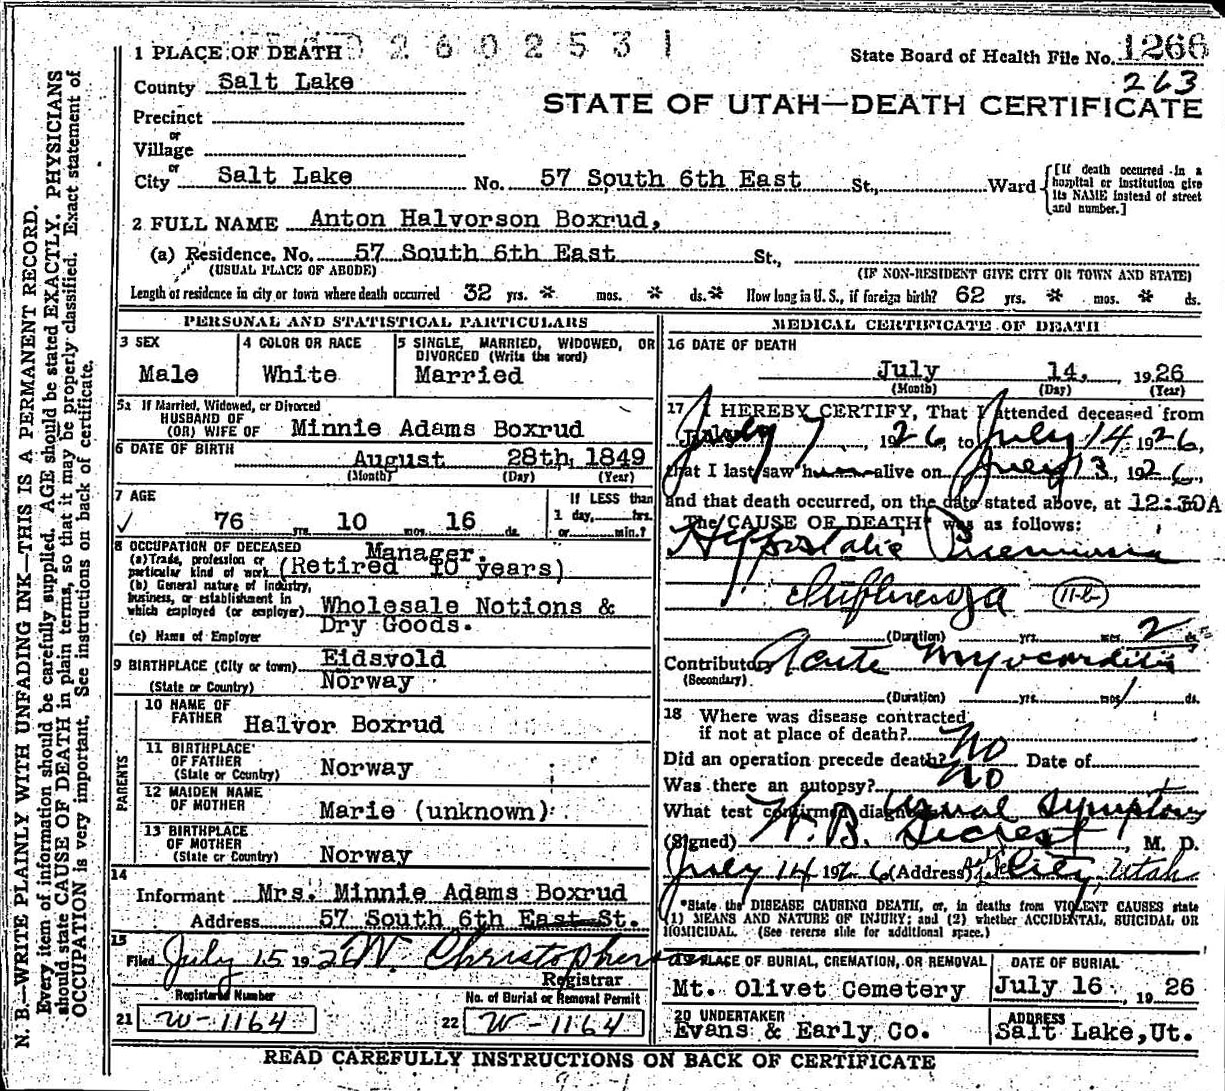 2602531
1 PLACE OF DEATH
State Board of Health File No. 1266
263
County Salt Lake
STATE OF UTAH—DEATH CERTIFICATE
Precinct
or
Village
or
City Salt Lake No. 57 South 6th East St., Ward
[If death occurred in a hospital or institution give its NAME instead of street and number.]
2 FULL NAME Anton Halvorson Boxrud,
(a) Residence. No. 57 South 6th East St.,
(USUAL PLACE OF ABODE) (IF NON-RESIDENT GIVE CITY OR TOWN AND STATE)
Length of residence in city or town where death occurred 32 yrs. * mos. * ds. * How long in U. S., if foreign birth? 62 yrs. * mos. * ds.
PERSONAL AND STATISTICAL PARTICULARS
3 SEX
Male
4 COLOR OR RACE
White
5 SINGLE, MARRIED, WIDOWED, OR
DIVORCED (Write the word)
Married
5a If Married, Widowed, or Divorced
HUSBAND OF
(OR) WIFE OF Minnie Adams Boxrud
6 DATE OF BIRTH
August 28th, 1849
(Month) (Day) (Year)
7 AGE
76 yrs. 10 mos. 16 ds.
If LESS than
1 day, hrs.
or min.?
8 OCCUPATION OF DECEASED
(a) Trade, profession or
particular kind of work
Manager.
(Retired 10 years)
(b) General nature of industry,
business, or establishment in
which employed (or employer)
Wholesale Notions &
Dry Goods.
(c) Name of Employer
9 BIRTHPLACE (City or town) Eidsvold
(State or Country) Norway
PARENTS
10 NAME OF
FATHER Halvor Boxrud
11 BIRTHPLACE
OF FATHER
(State or Country) Norway
12 MAIDEN NAME
OF MOTHER Marie (unknown)
13 BIRTHPLACE
OF MOTHER
(State or Country) Norway
14
Informant Mrs. Minnie Adams Boxrud
Address 57 South 6th East St.
15
Filed July 15 192 W. Christopherson
Registrar
Registered Number
21 W-1164
No. of Burial or Removal Permit
22 W-1164
MEDICAL CERTIFICATE OF DEATH
16 DATE OF DEATH
July 14, 1926
(Month) (Day) (Year)
17 I HEREBY CERTIFY, That I attended deceased from
July 7, 1926, to July 14 1926,
that I last saw him alive on July 13, 1926,
and that death occurred, on the date stated above, at 12:30A
The CAUSE OF DEATH* was as follows:
Hypostatic Pneumonia
Influenza 11-b
(Duration) yrs. mos. 2 ds.
Contributory Acute Myocarditis
(Secondary)
(Duration) yrs. mos. 1 ds.
18 Where was disease contracted
if not at place of death?
Did an operation precede death? No Date of
Was there an autopsy? No
What test confirmed diagnosis usual symptoms
(Signed) W. B. Secrest, M. D.
July 14 1926 (Address) Salt Lake City, Utah
*State the DISEASE CAUSING DEATH, or, in deaths from VIOLENT CAUSES state
(1) MEANS AND NATURE OF INJURY; and (2) whether ACCIDENTAL, SUICIDAL OR
HOMICIDAL. (See reverse side for additional space.)
19 PLACE OF BURIAL, CREMATION, OR REMOVAL
Mt. Olivet Cemetery
DATE OF BURIAL
July 16, 1926
20 UNDERTAKER
Evans & Early Co.
ADDRESS
Salt Lake, Ut.
READ CAREFULLY INSTRUCTIONS ON BACK OF CERTIFICATE
N. B.—WRITE PLAINLY WITH UNFADING INK—THIS IS A PERMANENT RECORD.
Every item of information should be carefully supplied. AGE should be stated EXACTLY. PHYSICIANS
should state CAUSE OF DEATH in plain terms, so that it may be properly classified. Exact statement of
OCCUPATION is very important. See instructions on back of certificate.